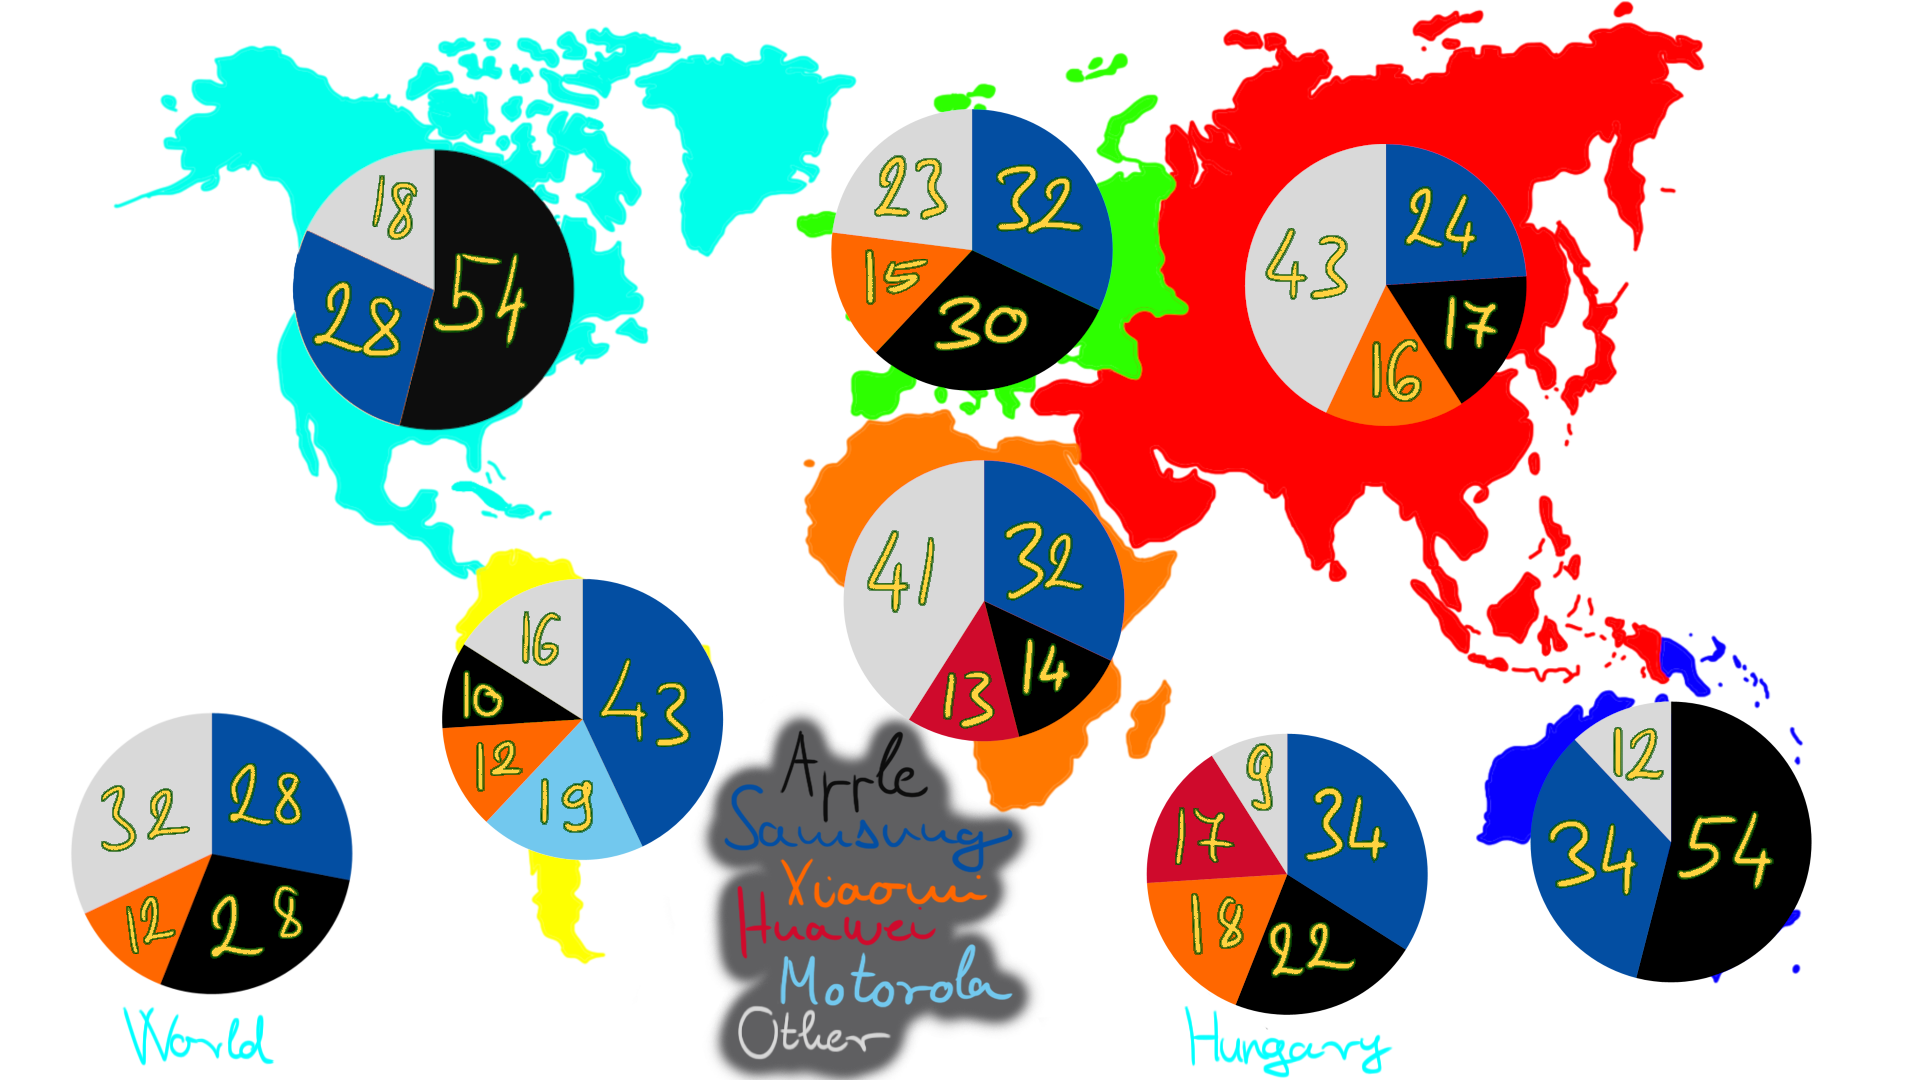 18
54
28
23
32
15
30
43
24
17
16
41
32
14
13
16
43
10
12
19
32
28
12
28
World
Apple
Samsung
Xiaomi
Huawei
Motorola
Other
9
34
17
18
22
Hungary
12
34
54